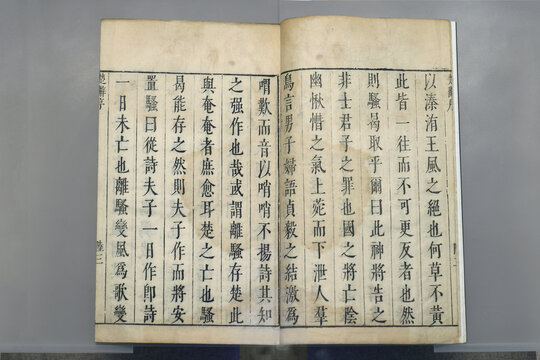 以溱洧王風之絕也何草不黃
此皆一往而不可更反者也然
則騷曷取乎爾曰此神將告之
非士君子之罪也國之將亡陰
幽愀惜之氣上菀而下泄人羣
鳥言男子婦語貞殺之結激為
喟歎而音以哨哨不揚詩其知
之强作也哉或謂離騷存楚此
與奄奄者庶愈耳楚之亡也騷
曷能存之然則夫子作而將安
置騷曰從詩夫子一日作卽詩
一日未亡也離騷變風為歌變
楚辭序
陸三